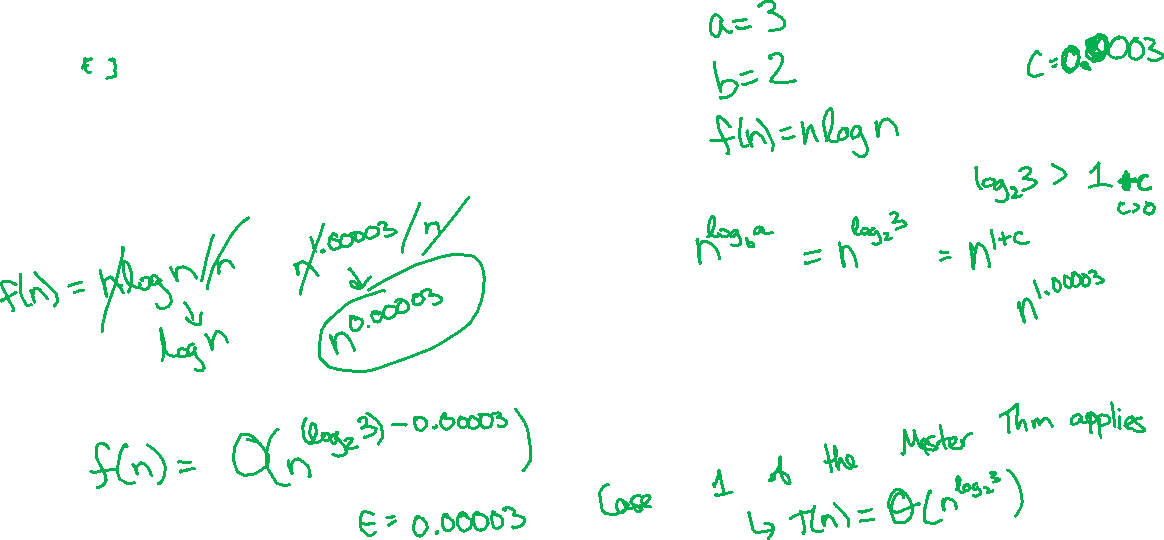 a = 3
b = 2
C = 0.0003
f(n) = n log n
log₂3 > 1 + c
c>0
n^(log_b a) = n^(log₂3) = n^(1+c)
n^1.00003
f(n) = n log n / n
n^1.00003 / n
↓ log n
↓ n^0.00003
f(n) = O(n^((log₂3) - 0.00003))
E = 0.00003
Case 1 of the Master Thm applies
↳ T(n) = Θ(n^(log₂3))